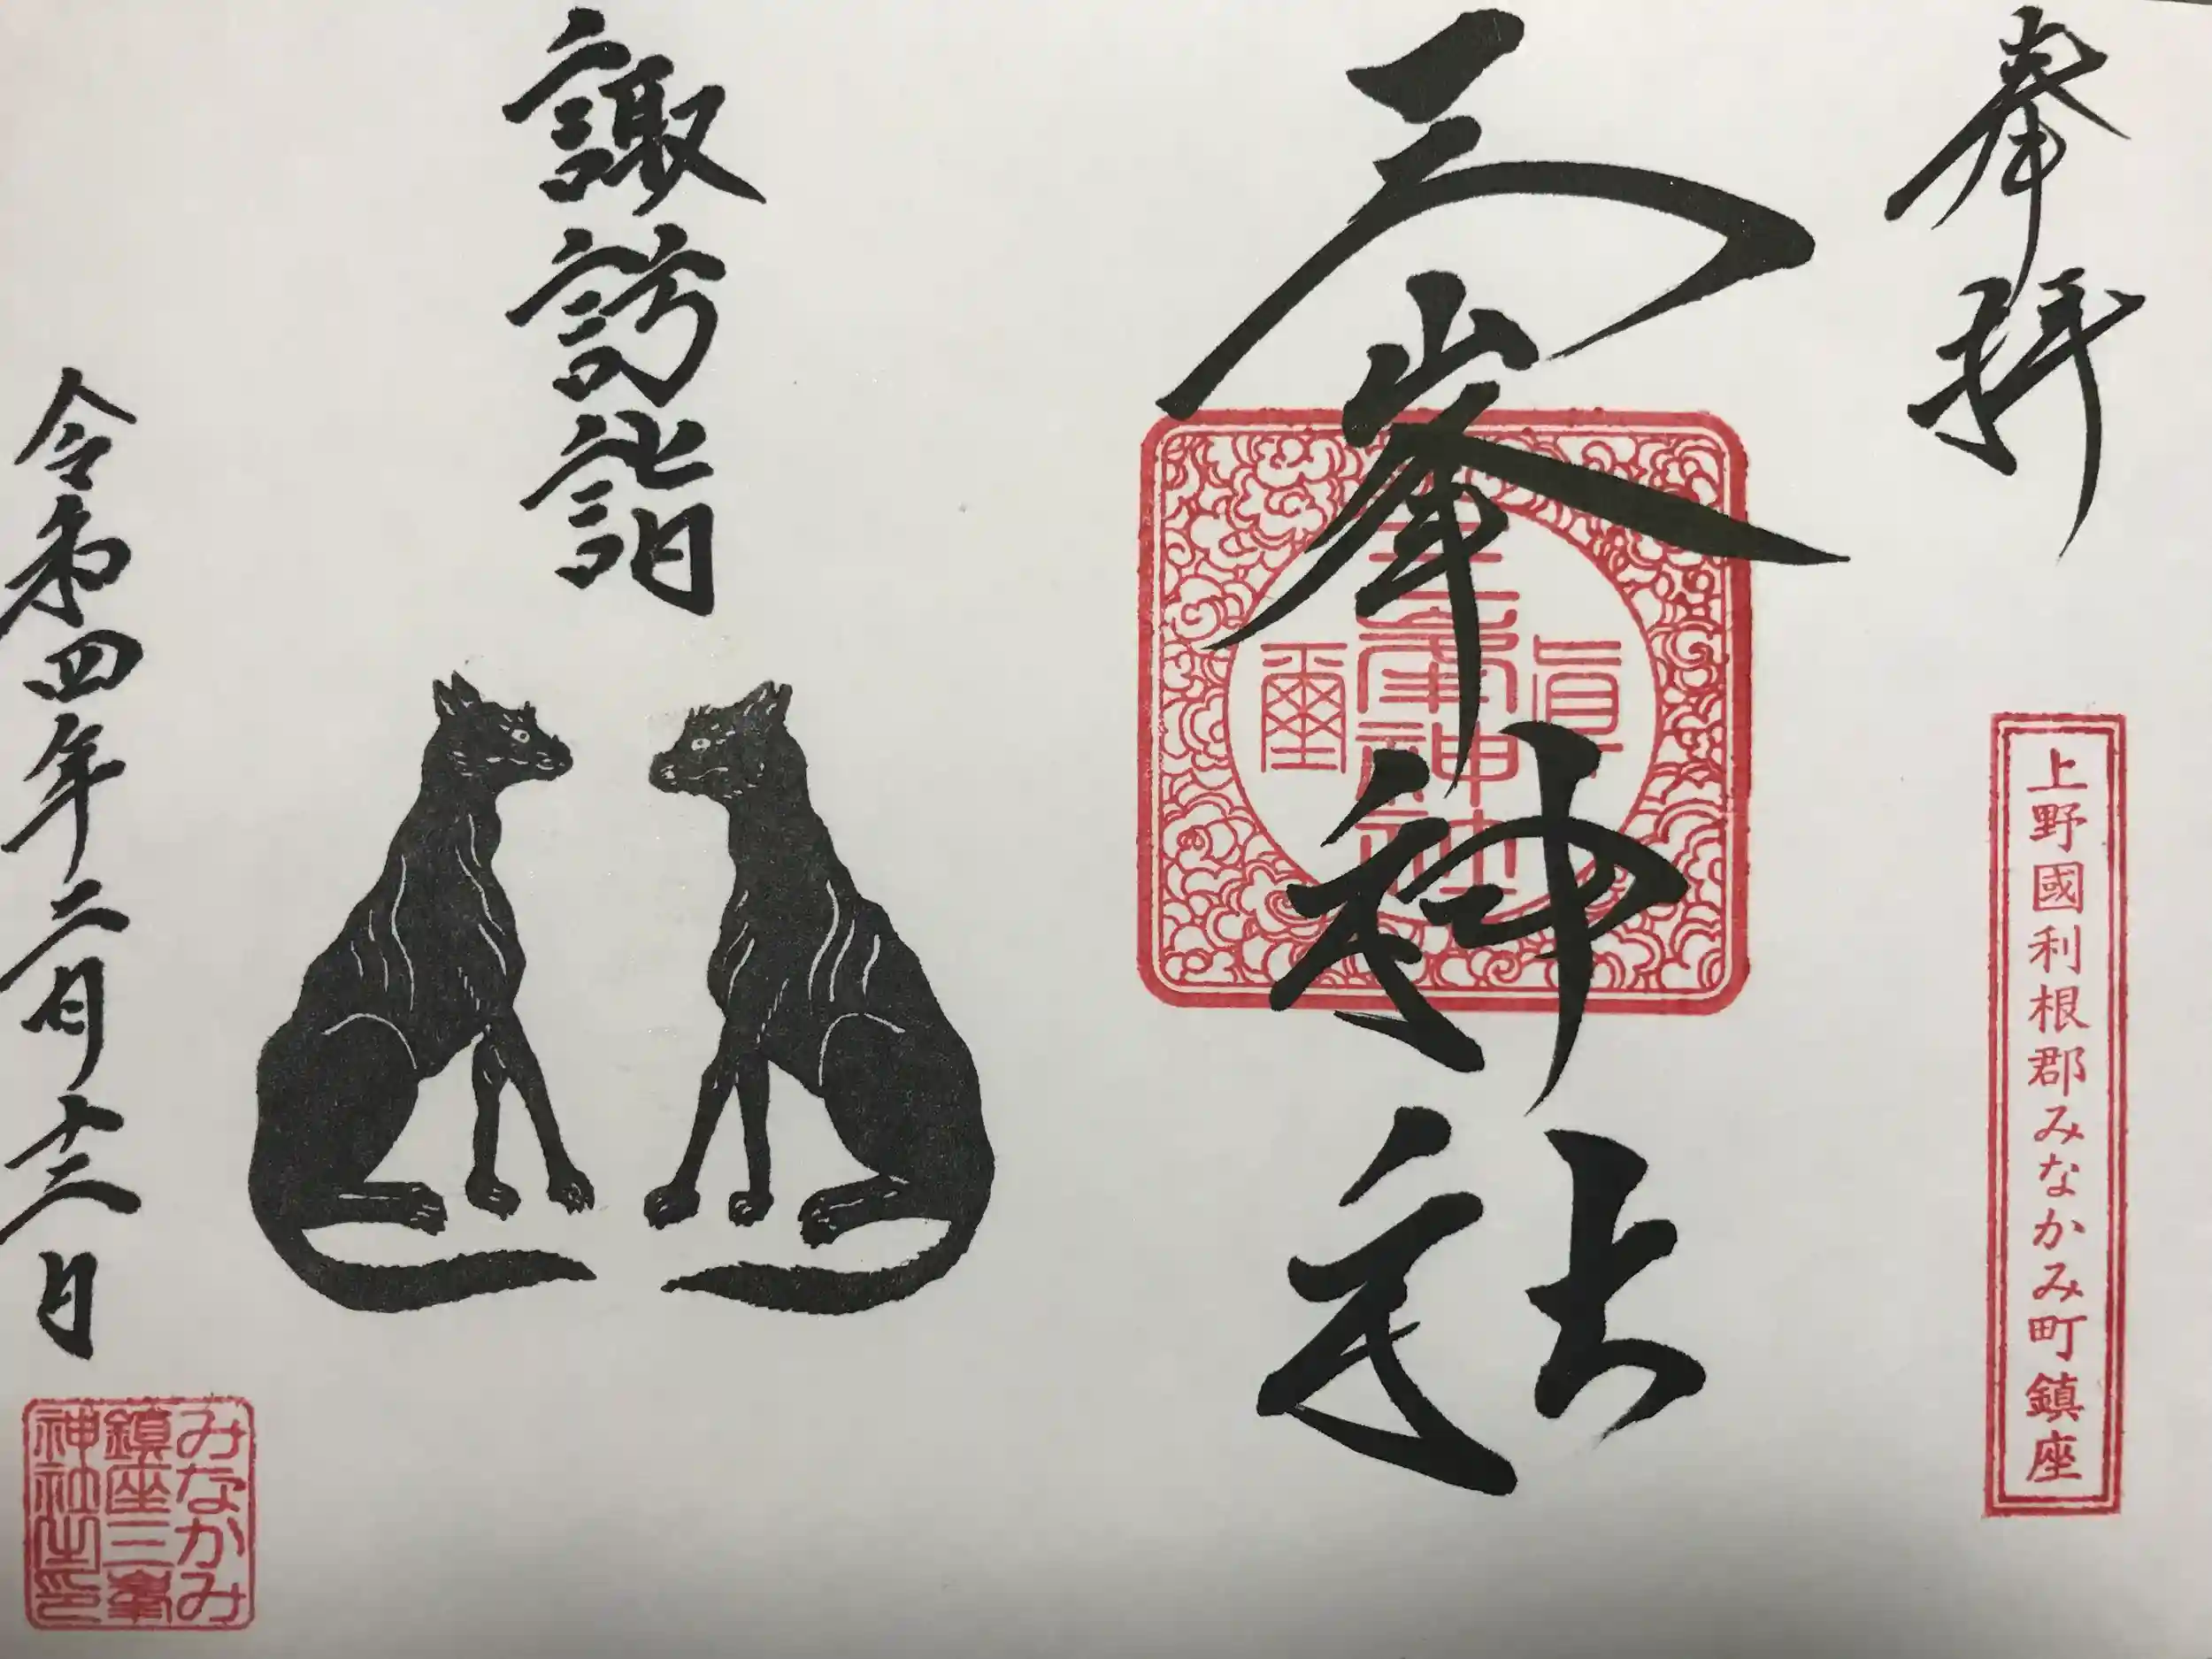 奉拝
上野國利根郡みなかみ町鎮座
三峯神社
三峯神社
諏訪詣
令和四年二月十二日
みなかみ
鎮座三峯
神社之印